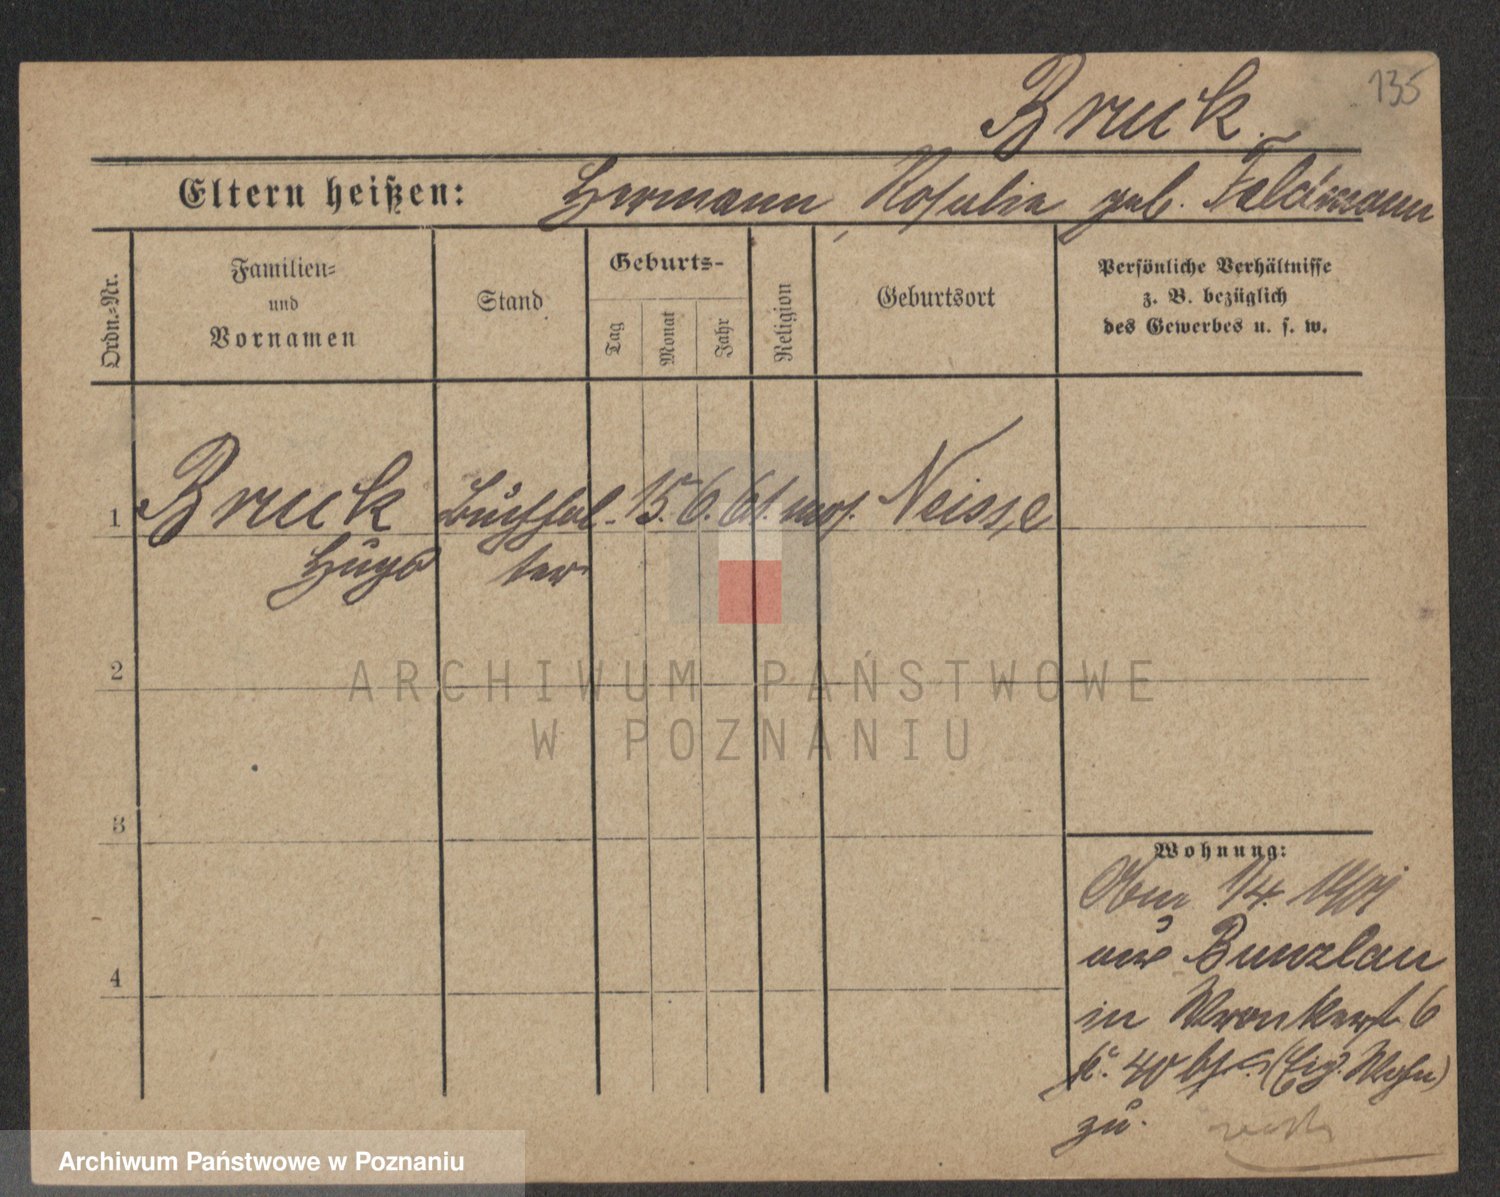 135
Bruck.
Eltern heißen: Hermann, Rosalie geb. Feldmann
Ordn.-Nr.
Familien-
und
Vornamen
Stand
Geburts-
Tag
Monat
Jahr
Religion
Geburtsort
Persönliche Verhältnisse
z. B. bezüglich
des Gewerbes u. s. w.
1 Bruck Buchhal- 15. 6. 61. mos. Neisse
Hugo ter
2
ARCHIWUM PAŃSTWOWE
W POZNANIU
3
4
Wohnung:
1/4. 1901
aus Bunzlau
in Wronkerst. 6
40 (Eig. Wohn)
zu.
Archiwum Państwowe w Poznaniu